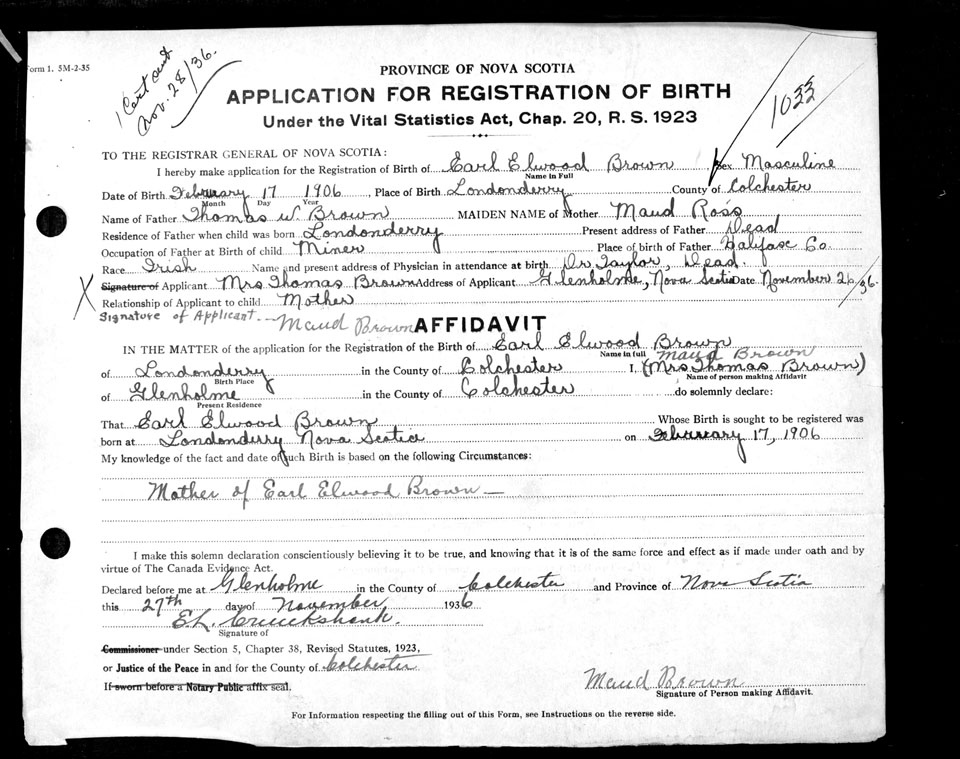 Form 1. 5M-2-35
1 Cert sent
Nov. 28/36.
1033
PROVINCE OF NOVA SCOTIA
APPLICATION FOR REGISTRATION OF BIRTH
Under the Vital Statistics Act, Chap. 20, R. S. 1923
TO THE REGISTRAR GENERAL OF NOVA SCOTIA:
I hereby make application for the Registration of Birth of Earl Elwood Brown Sex Masculine
Name in Full
Date of Birth February 17 1906 Place of Birth Londonderry County of Colchester
Month Day Year
Name of Father Thomas W. Brown MAIDEN NAME of Mother Maud Ross
Residence of Father when child was born Londonderry Present address of Father Dead
Occupation of Father at Birth of child Miner Place of birth of Father Halifax Co.
Race Irish Name and present address of Physician in attendance at birth Dr Taylor, Dead.
X Signature of Applicant Mrs Thomas Brown Address of Applicant Glenholme, Nova Scotia Date November 26/36.
Relationship of Applicant to child Mother
Signature of Applicant. Maud Brown
AFFIDAVIT
IN THE MATTER of the application for the Registration of the Birth of Earl Elwood Brown
Name in full Maud Brown
of Londonderry in the County of Colchester I, (Mrs Thomas Brown)
Birth Place Name of person making Affidavit
of Glenholme in the County of Colchester do solemnly declare:
Present Residence
That Earl Elwood Brown Whose Birth is sought to be registered was
born at Londonderry Nova Scotia on February 17, 1906
My knowledge of the fact and date of such Birth is based on the following Circumstances:
Mother of Earl Elwood Brown —
I make this solemn declaration conscientiously believing it to be true, and knowing that it is of the same force and effect as if made under oath and by
virtue of The Canada Evidence Act.
Declared before me at Glenholme in the County of Colchester and Province of Nova Scotia
this 27th day of November 1936
E.L. Cruickshank.
Signature of
Commissioner under Section 5, Chapter 38, Revised Statutes, 1923,
or Justice of the Peace in and for the County of Colchester
If sworn before a Notary Public affix seal.
Maud Brown
Signature of Person making Affidavit.
For Information respecting the filling out of this Form, see Instructions on the reverse side.